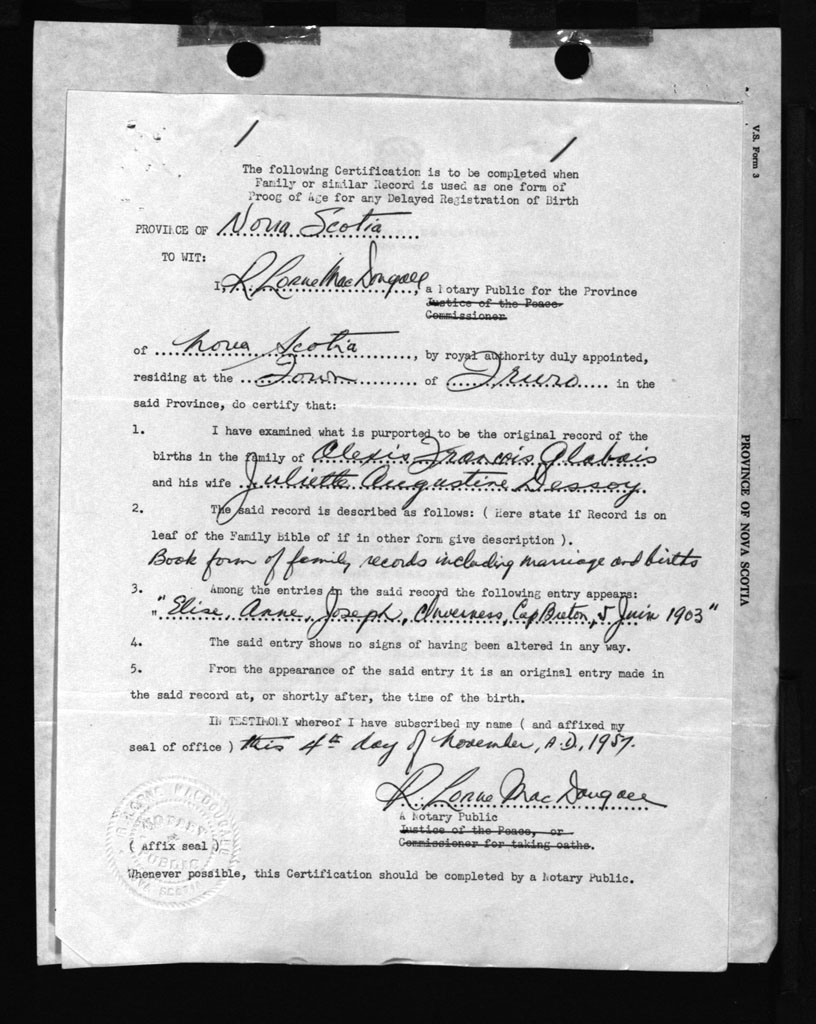 V.S. Form 3
PROVINCE OF NOVA SCOTIA
The following Certification is to be completed when
Family or similar Record is used as one form of
Proog of Age for any Delayed Registration of Birth
PROVINCE OF Nova Scotia
TO WIT:
I, R. Lorne MacDougall, a Notary Public for the Province
Justice of the Peace
Commissioner
of Nova Scotia, by royal authority duly appointed,
residing at the Town of Truro in the
said Province, do certify that:
1. I have examined what is purported to be the original record of the
births in the family of Alexis Francois Glabais
and his wife Juliette Augustine Dessoy.
2. The said record is described as follows: ( Here state if Record is on
leaf of the Family Bible of if in other form give description ).
Book form of family records including marriage and births
3. Among the entries in the said record the following entry appears:
"Elise, Anne, Joseph, Inverness, Cap Breton, 5 Juin 1903"
4. The said entry shows no signs of having been altered in any way.
5. From the appearance of the said entry it is an original entry made in
the said record at, or shortly after, the time of the birth.
IN TESTIMONY whereof I have subscribed my name ( and affixed my
seal of office ) this 4th day of November, A.D, 1957.
R. Lorne MacDougall
A Notary Public
Justice of the Peace, or
Commissioner for taking oaths.
NOTARY
PUBLIC
NOVA SCOTIA
( Affix seal )
Whenever possible, this Certification should be completed by a Notary Public.